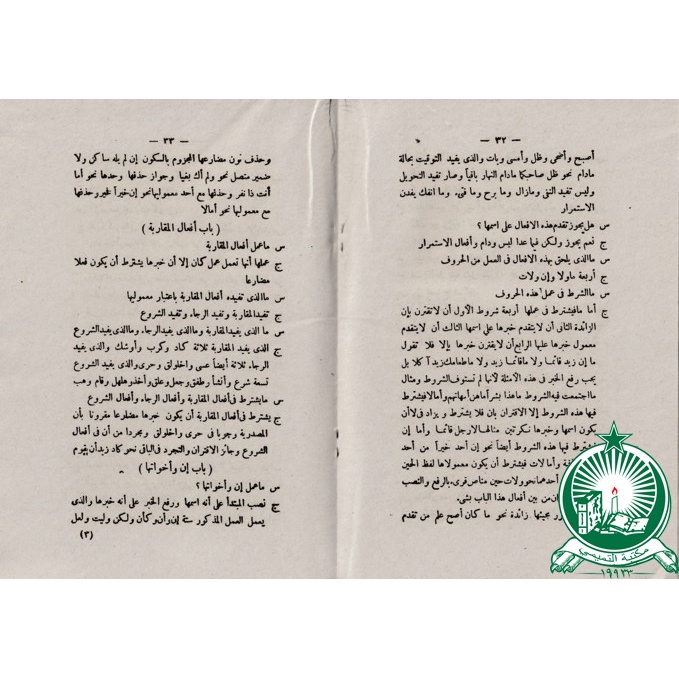 — ٣٢ —
أصبح وأضحى وظل وأمسى وبات والذى يفيد التوقيت بحالة
مادام نحو ظل صاحبكما مادام النهار باقياً وصار تفيد التحويل
وليس تفيد النفى ومازال وما برح وما فتىء وما انفك يفدن
الاستمرار
س هل يجوز تقدم هذه الافعال على اسمها ؟
ج نعم يجوز ولكن فيما عدا ليس ودام وأفعال الاستمرار
س ما الذى يلحق بهذه الافعال فى العمل من الحروف
ج أربعة ما ولا وإن ولات
س ما الشرط فى عمل هذه الحروف
ج أما ما فيشترط فى عملها أربعة شروط الأول أن لا تقترن بإن
الزائدة الثانى أن لا يتقدم خبرها على اسمها الثالث أن لا يتقدم
معمول خبرها عليها الرابع أن لا يقترن خبرها بإلا فلا تقول
ما إن زيد قائما ولا ما قائما زيد ولا ما طعامك زيد آكلا بل
يجب رفع الخبر فى هذه الأمثلة لأنها لم تستوف الشروط ومثال
ما اجتمعت فيه الشروط ما هذا بشرا ما هن أمهاتهم وأما لا فيشترط
فيها هذه الشروط إلا الاقتران بان فلا يشترط و يزاد فى لا أن
يكون اسمها وخبرها نكرتين مثالها لا رجل قائما وأما إن
فيها هذه الشروط أيضاً نحو إن أحد خيراً من أحد
وأما لات فيشترط أن يكون معمولاها لفظ الحين
أحدهما نحو ولات حين مناص قرىء بالرفع والنصب
من بين أفعال هذا الباب بشىء
مجيئها زائدة نحو ما كان أصح علم من تقدم
— ٣٣ —
وحذف نون مضارعها المجزوم بالسكون إن لم يله ساكن ولا
ضمير متصل نحو ولم أك بغيا وجواز حذفها وحدها نحو أما
أنت ذا نفر وحذفها مع أحد معموليها نحو إن خيراً فخير وحذفها
مع معموليها نحو أمالا
( باب أفعال المقاربة )
س ماعمل أفعال المقاربة
ج عملها أنها تعمل عمل كان إلا أن خبرها يشترط أن يكون فعلا
مضارعا
س ما الذى تفيده أفعال المقاربة باعتبار معموليها
ج تفيد المقاربة وتفيد الرجاء وتفيد الشروع
س ما الذى يفيد المقاربة وما الذى يفيد الرجاء وما الذى يفيد الشروع
ج الذى يفيد المقاربة ثلاثة كاد وكرب وأوشك والذى يفيد
الرجاء ثلاثة أيضاً عسى واخلولق وحرى والذى يفيد الشروع
تسعة شرع وأنشأ وطفق وجعل وعلق وأخذ وهلهل وقام وهب
س ما يشترط فى أفعال المقاربة وأفعال الرجاء وأفعال الشروع
ج يشترط فى أفعال المقاربة أن يكون خبرها مضارعا مقرونا بأن
المصدرية وجوبا فى حرى واخلولق ومجردا من أن فى أفعال
الشروع وجائز الاقتران والتجرد فى الباقى نحو كاد زيد أن يقوم
( باب إن وأخواتها )
س ماعمل إن وأخواتها ؟
ج نصب المبتدأ على أنه اسمها ورفع الخبر على أنه خبرها والذى
يعمل العمل المذكور ستة إن وأن وكأن ولكن وليت ولعل
(٣)
مكتبة التميمي